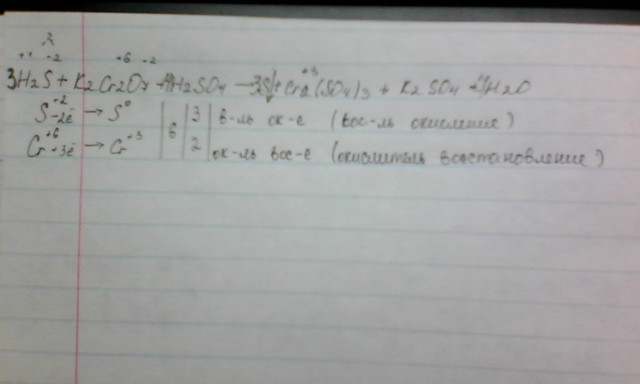 +1 -2 +6 -2
3H2S + K2Cr2O7 + 4H2SO4 → 3S↓ + Cr2(SO4)3 + K2SO4 + 7H2O
S-2 -2ē → S0 | 6 | 3 | в-ль ок-е (вос-ль окисление)
Cr+6 +3ē → Cr+3 | 2 | ок-ль вос-е (окислитель восстановление)